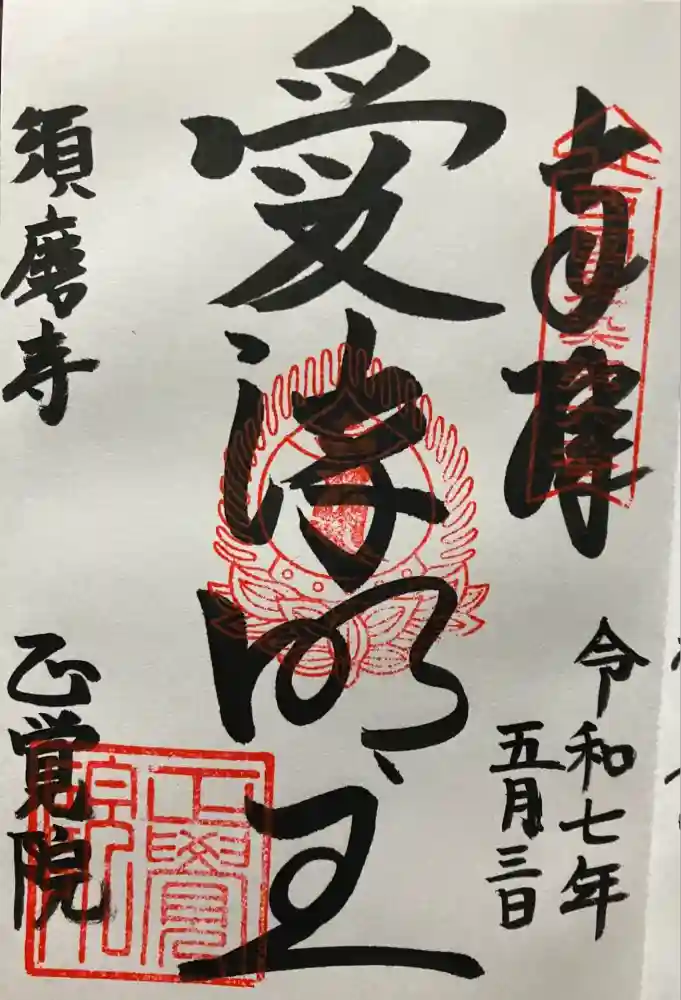 令和七年
五月三日
愛染明王
須磨寺
正覚院
正覺